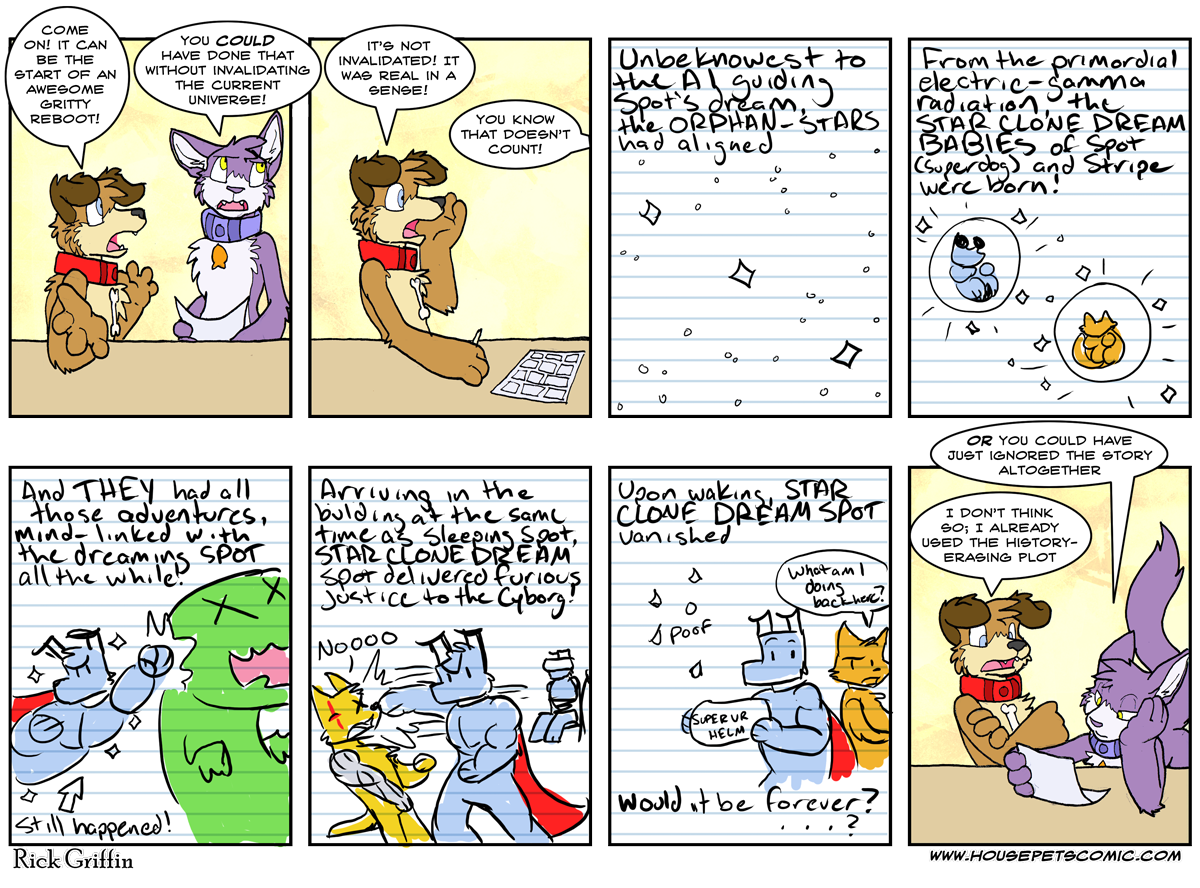 COME
ON! IT CAN
BE THE
START OF AN
AWESOME
GRITTY
REBOOT!
YOU COULD
HAVE DONE THAT
WITHOUT INVALIDATING
THE CURRENT
UNIVERSE!
IT'S NOT
INVALIDATED! IT
WAS REAL IN A
SENSE!
YOU KNOW
THAT DOESN'T
COUNT!
Unbeknowest to
the AI guiding
Spot's dream,
the ORPHAN-STARS
had aligned
From the primordial
electric-gamma
radiation, the
STAR CLONE DREAM
BABIES of Spot
(superdog) and Stripe
were born!
And THEY had all
those adventures,
mind-linked with
the dreaming SPOT
all the while!
Still happened!
Arriving in the
bulding at the same
time as sleeping Spot,
STAR CLONE DREAM
Spot delivered furious
justice to the Cyborg!
NOOOO
Upon waking, STAR
CLONE DREAM SPOT
vanished
What am I
doing
back here?
poof
SUPER VR
HELM
Would it be forever?
. . . . ?
OR YOU COULD HAVE
JUST IGNORED THE STORY
ALTOGETHER
I DON'T THINK
SO; I ALREADY
USED THE HISTORY-
ERASING PLOT
Rick Griffin
WWW.HOUSEPETSCOMIC.COM